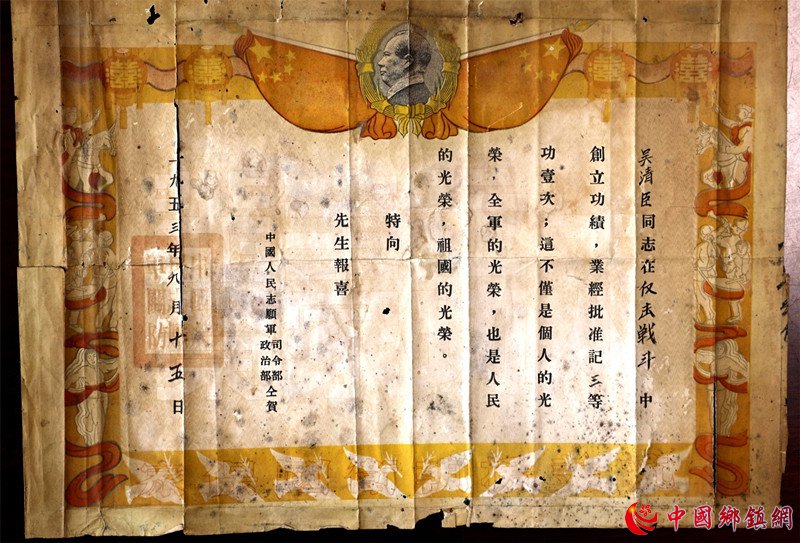 吴清臣同志在反击戰斗中
創立功績，業經批准記三等
功壹次；這不僅是個人的光
榮，全軍的光榮，也是人民
的光榮，祖國的光榮。
特向
先生報喜
中國人民志願軍司令部
政治部仝賀
一九五三年九月十五日
中國鄉鎮網